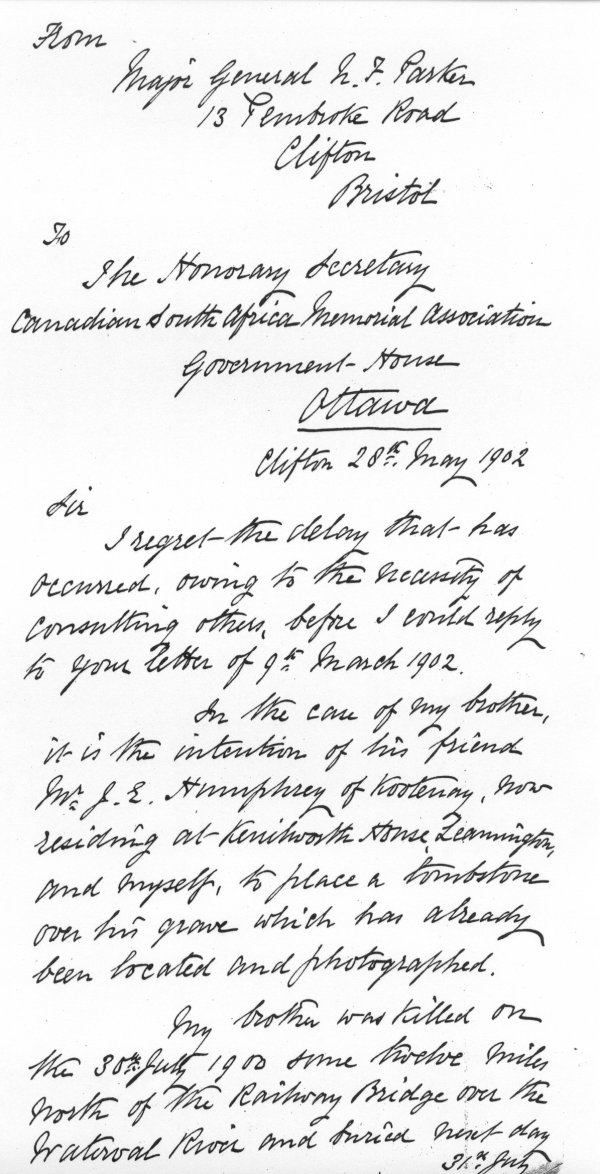 From
Major General N. F. Parker
13 Pembroke Road
Clifton
Bristol
To
The Honorary Secretary
Canadian South Africa Memorial Association
Government House
Ottawa
Clifton 28th. May 1902
Sir
I regret the delay that has
occurred, owing to the necessity of
consulting others, before I could reply
to your letter of 9th March 1902.
In the case of my brother,
it is the intention of his friend
Mr J. E. Humphrey of Kootenay, now
residing at Kenilworth House, Leamington,
and myself, to place a tombstone
over his grave which has already
been located and photographed.
My brother was killed on
the 30th July 1900 some twelve miles
north of the Railway Bridge over the
Waterval River and buried next day
31st July